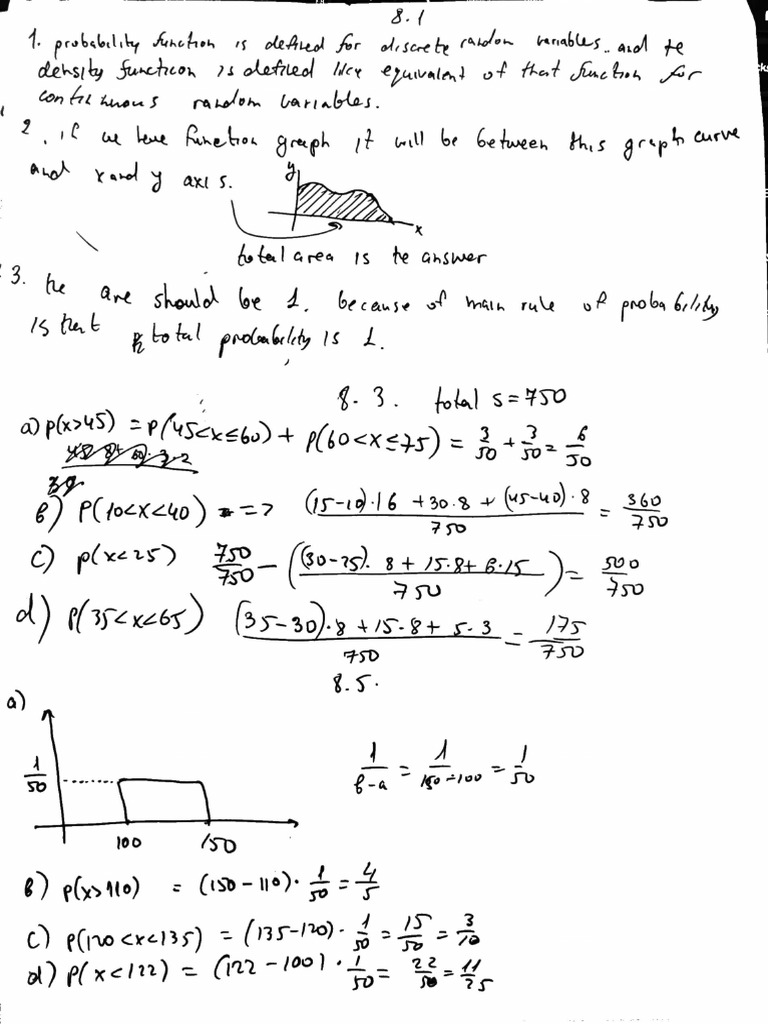 8.1
1. probability function is defined for discrete random variables.. and te
density function is defined like equivalent of that function for
continuous random variables.
2. if we have function graph it will be between this graph curve
and x and y axis.
y
x
total area is te answer
3. the are should be 1. because of main rule of probability
is that total probability is 1.
8.3. total s=750
a) p(x>45) = p(45<x≤60) + p(60<x≤75) = 3/50 + 3/50 = 6/50
b) P(10<x<40) => ((15-10)·16 + 30·8 + (45-40)·8)/750 = 360/750
c) p(x<25) 750/750 - (((30-25)·8 + 15·8 + 6·15)/750) = 500/750
d) P(35<x<65) ((35-30)·8 + 15·8 + 5·3)/750 = 175/750
8.5.
a)
1/50
1/(b-a) = 1/(150-100) = 1/50
100 150
b) p(x>110) = (150-110)·1/50 = 4/5
c) p(120<x<135) = (135-120)·1/50 = 15/50 = 3/10
d) p(x<122) = (122-100)·1/50 = 22/50 = 11/25